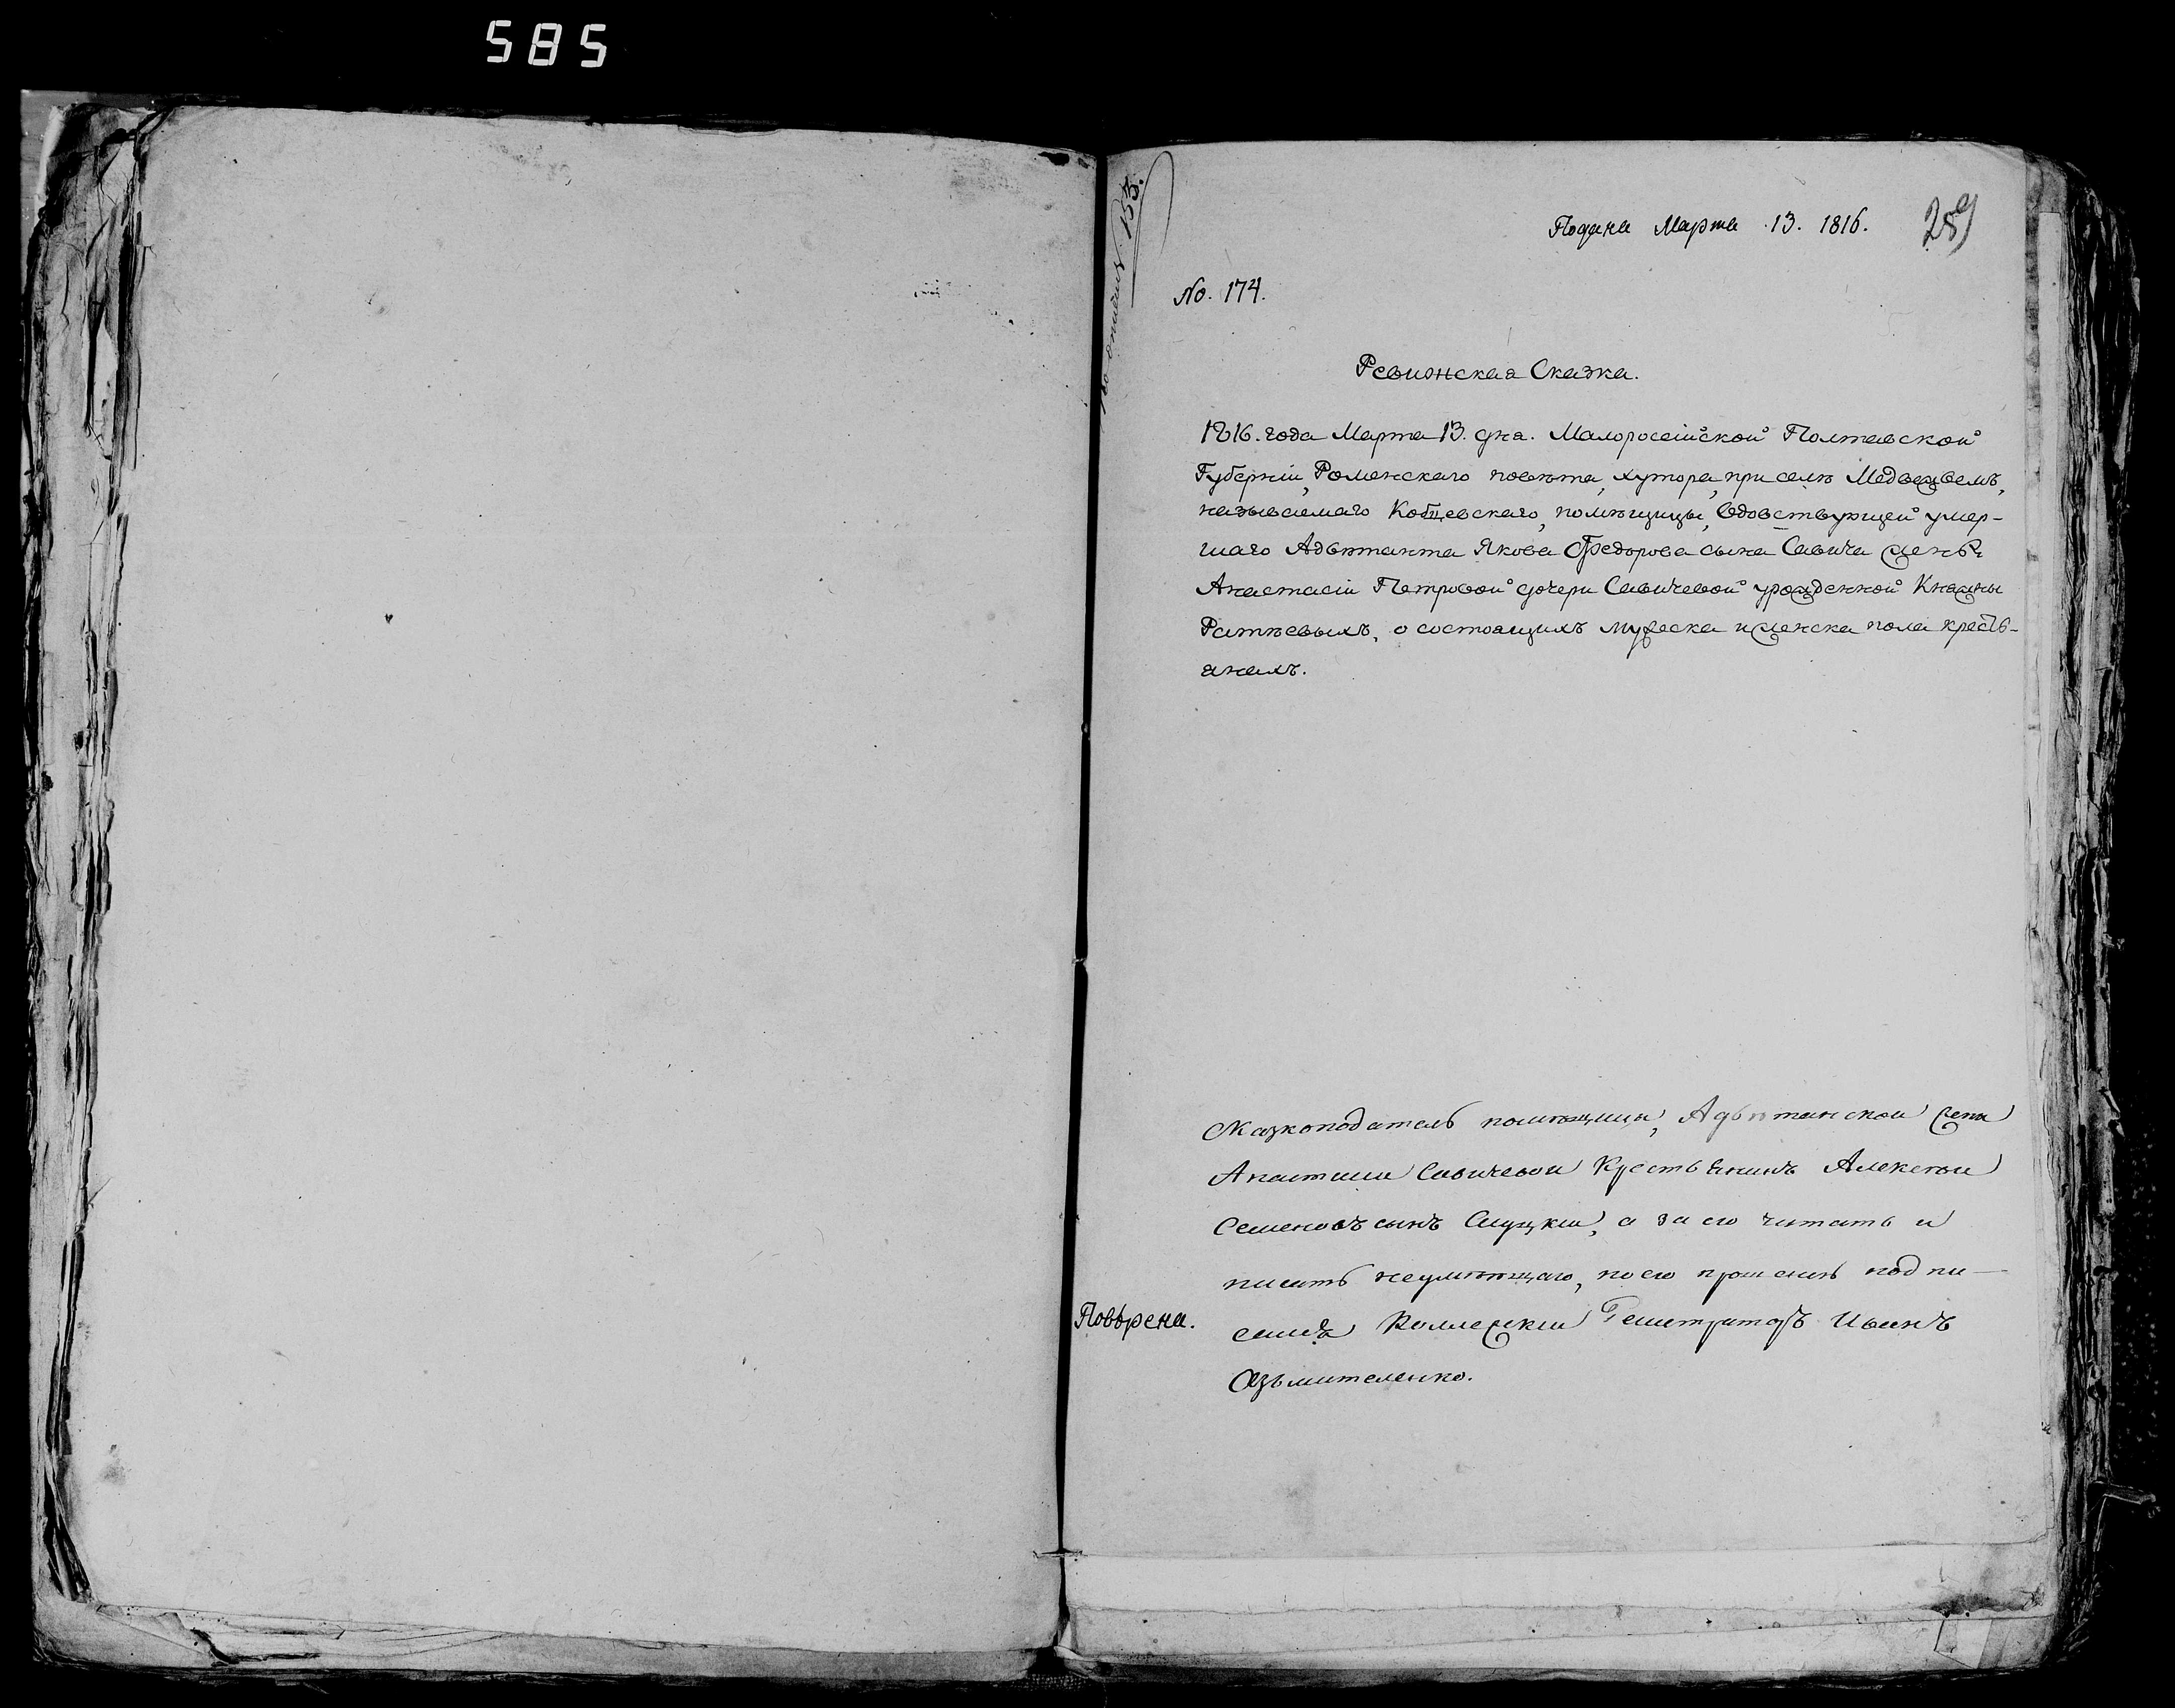 585
по описи № 153.
Подана Марта 13. 1816.
289
No. 174.
Ревижская Сказка.
1816. года Марта 13. дня. Малоросейской Полтавской
Губерніи, Роменскаго повѣта, хутора, при селѣ Медвежемъ,
называемаго Кобцевскаго, помѣщицы, вдовствующей умер-
шаго Адъютанта Якова Федорова сына Савича жены
Анастасіи Петровой дочери Савичевой урожденной Княжны
Ратѣевыхъ, о состоящихъ мужеска и женска пола кресть-
янахъ.
Сказкоподатель помѣщицы, Адъютанской жены
Анастасіи Савичевой Крестьянинъ Алексѣй
Семеновъ сынъ Слуцкій, а за его читать и
писать неумѣющаго, по его прошенію подпи-
Повѣрена.
сался Коллежскій Регистраторъ Иванъ